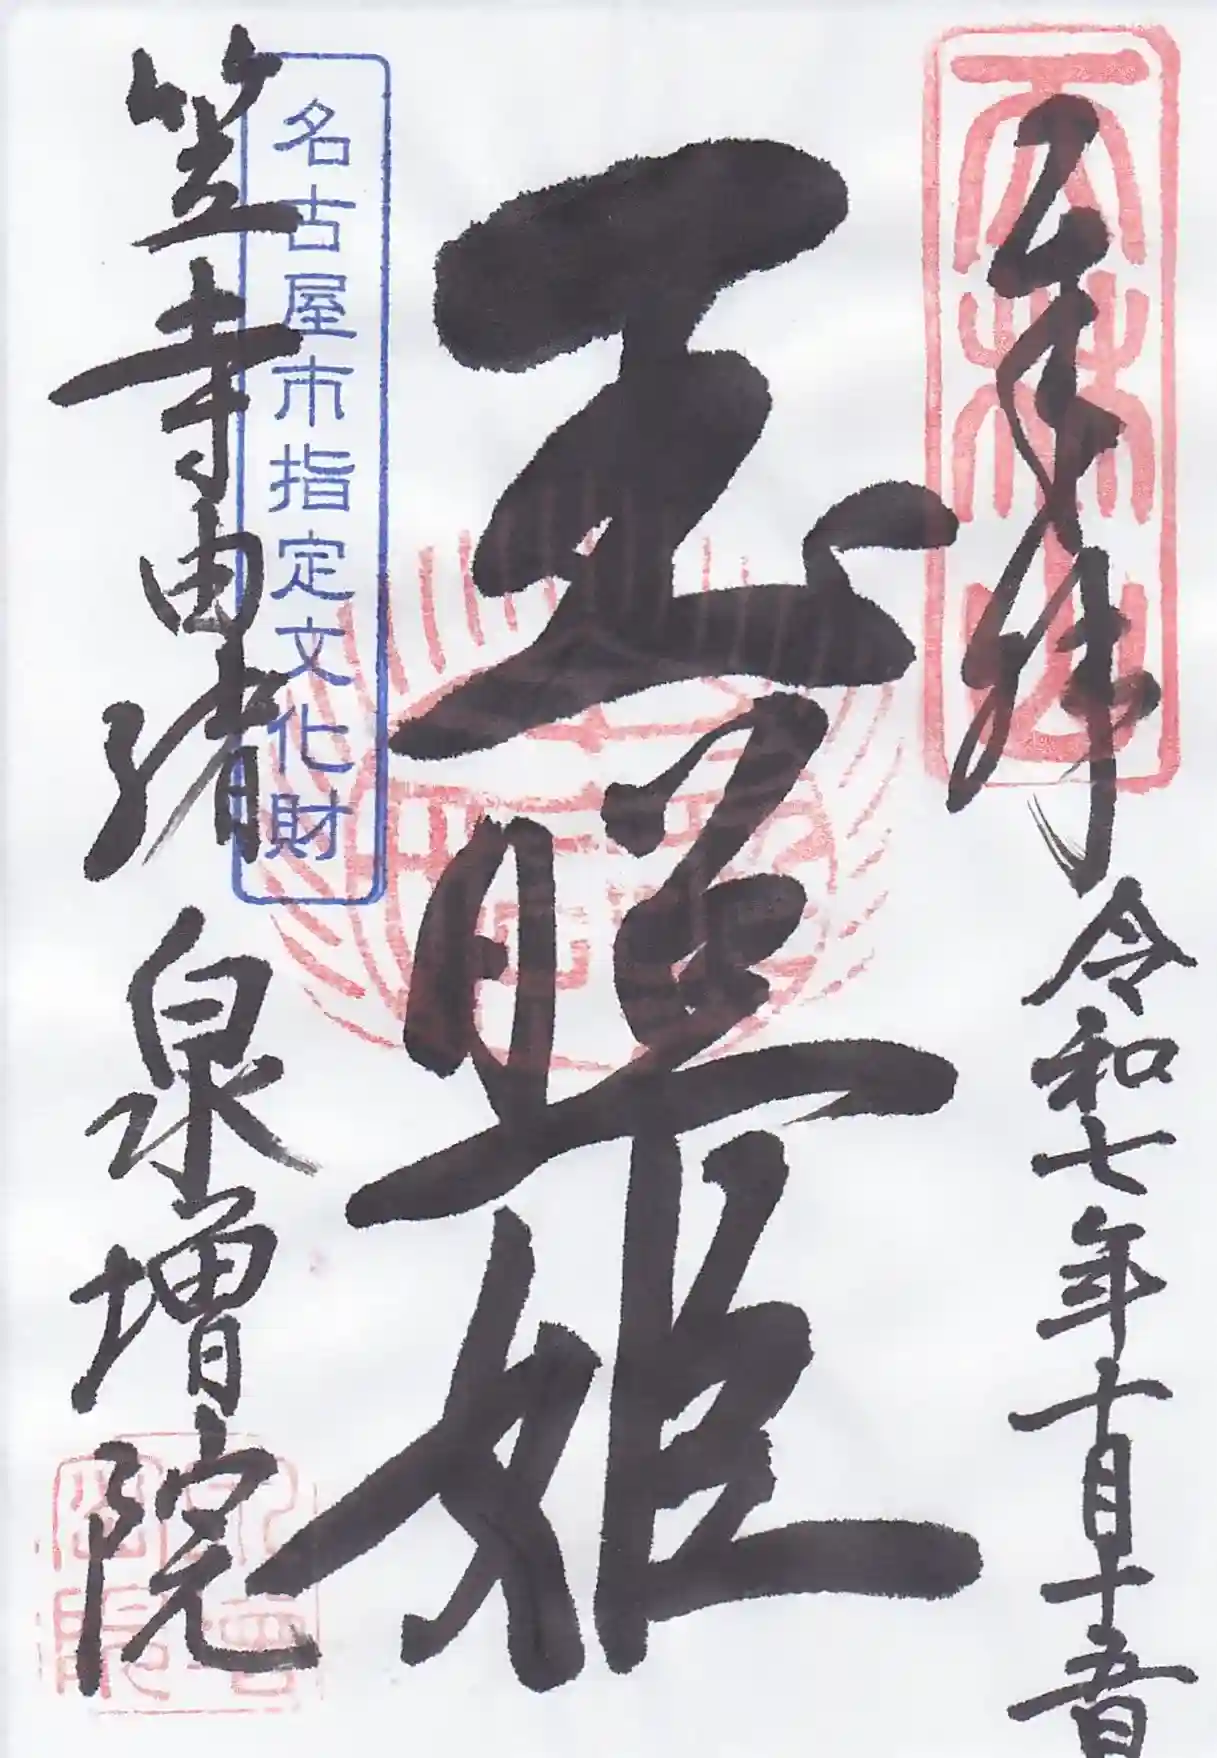 天林山
奉拝 令和七年十月十五日
玉照姫
名古屋市指定文化財
笠寺由緒 泉増院